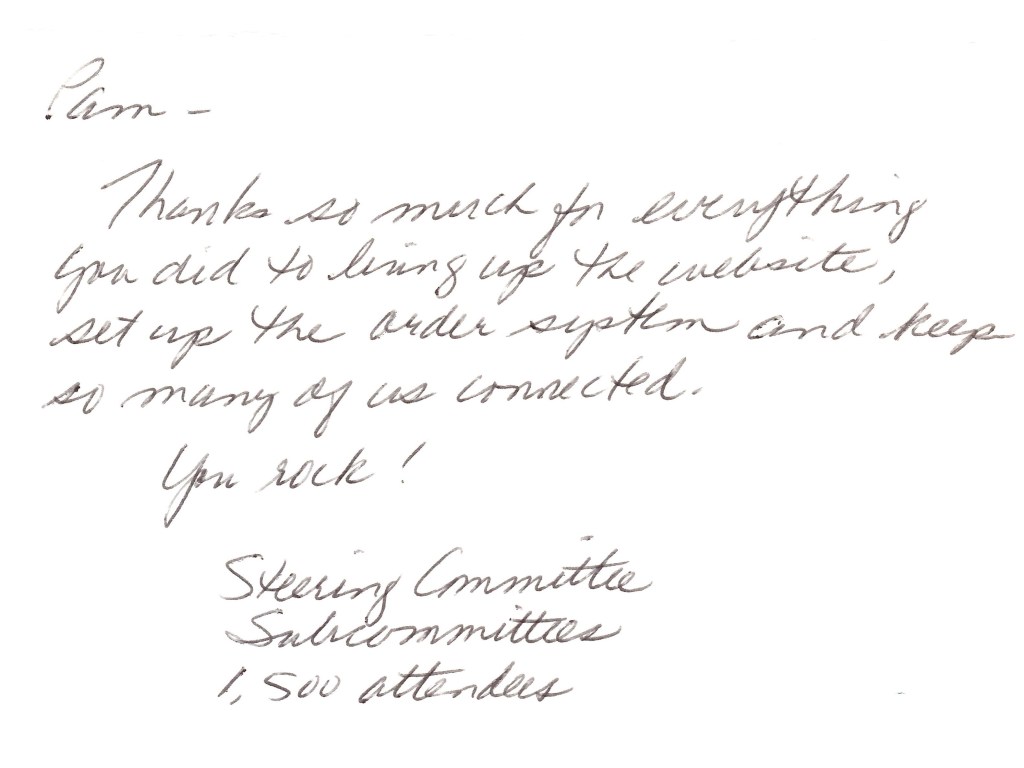 Pam -
Thanks so much for everything
you did to bring up the website,
set up the order system and keep
so many of us connected.
You rock!
Steering Committee
Subcommittees
1,500 attendees